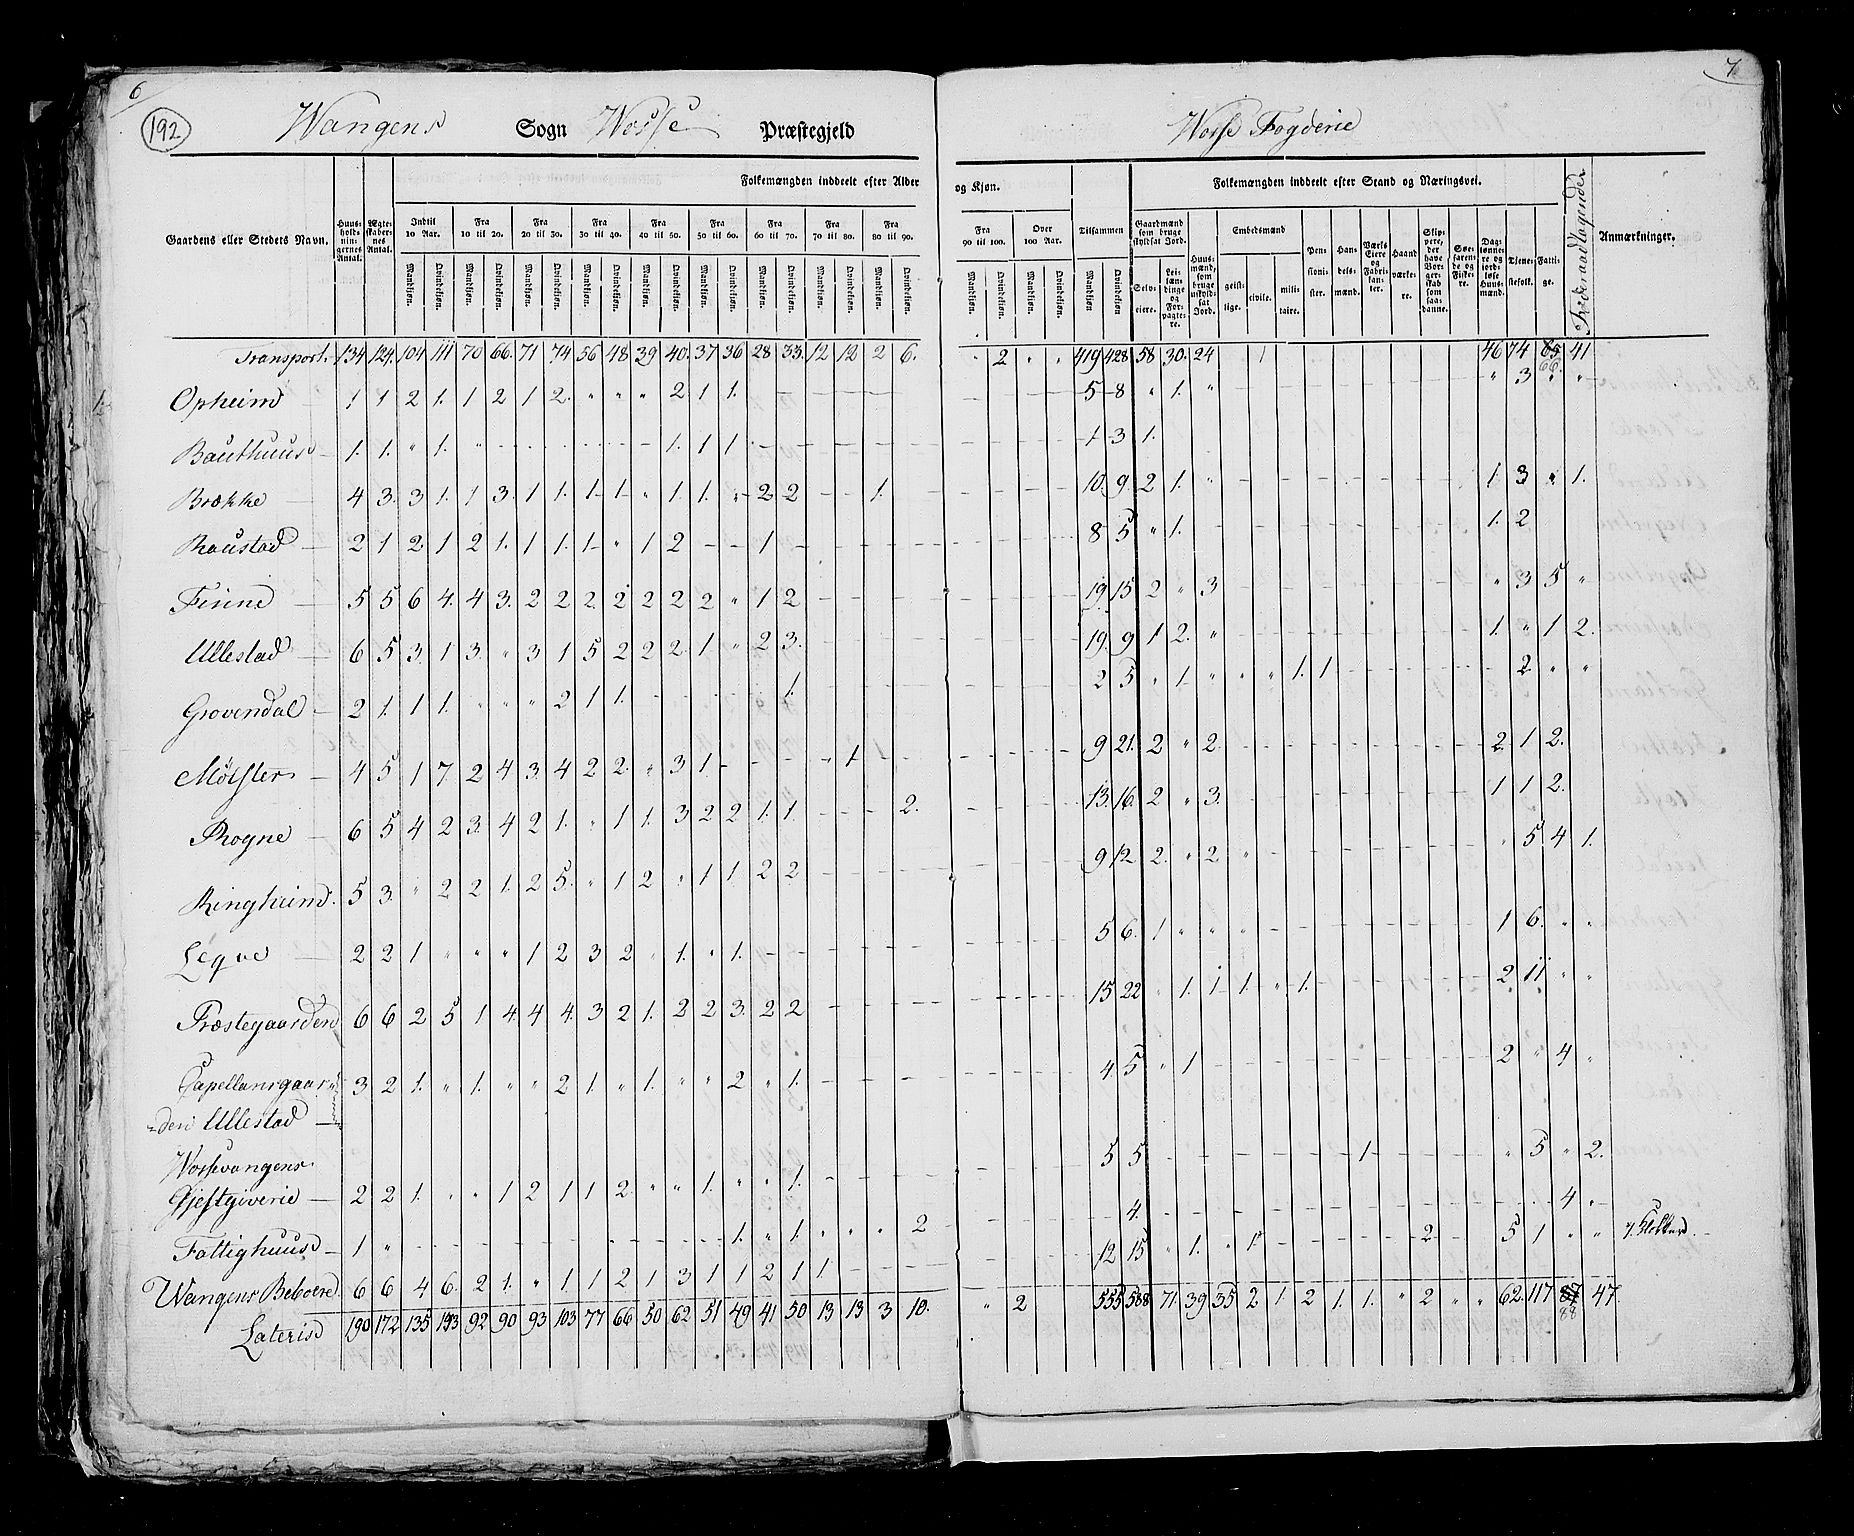 6
7
192
Wangens Sogn Vosse Præstegjeld
Vosse Fogderie
Gaardens eller Stedets Navn.
Huus-holdningernes Antal.
Ægteskabernes Antal.
Folkemængden inddeelt efter Alder og Kjøn.
Indtil 10 Aar. Fra 10 til 20. Fra 20 til 30. Fra 30 til 40. Fra 40 til 50. Fra 50 til 60. Fra 60 til 70. Fra 70 til 80. Fra 80 til 90. Fra 90 til 100. Over 100 Aar. Tilsammen
Mandkjøn. Qvindekjøn.
Folkemængden inddeelt efter Stand og Næringsvei.
Gaardmænd som bruge skyldsat Jord.
Selveiere. Leilændinge og Forpagtere.
Huusmænd, som bruge uskyldsat Jord.
Embedsmænd
geistlige. civile. militaire.
Pensionister.
Handelsmænd.
Værks Eiere og Fabrikanter.
Haandværkere.
Skippere, der have Borgerskab som saadanne.
Søefarende og Fiskere.
Daglønnere og jordløse Huusmænd.
Tjenestefolk.
Fattige.
Foderaadtagender
Anmærkninger.
Transport. 134 124 104 111 70 66. 71 74 56 48 39 40. 37 36 28 33. 12 12 2 6. " 2 " " 419 428 58 30. 24 1 46 74 65 66. 41
Opheim 1 1 2 1. 1 2 1 2. " " " 2 1 1. 5 8 " 1. " " 3 " "
Bauthuus 1. 1. " 1. " 1. 1 1 1 3 1.
Brække 4 3. 3 1. 1 3. 1 1. 1 1 " 1. 1. " 2 2 1. 10. 9. 2 1. " 1. 3 " 1.
Raustad 2 1 2 1 2 1. 1 1. 1 " 1 2 1 8 5 " 1. 1. 2
Finne 5 5 6 4. 4 3. 2 2 2 2 2 2 2 " 1 2 19. 15 2 " 3 " 3 5 "
Ullestad 6 5 3. 1 3. " 3 1 5 2 2 2. 1 " 2 3. 19. 9 1 2. " 1. " 1 2.
Grovendal 2 1. 1 1. " " " 2 1 1. 1. 2 5 " 1 " " " 1. 1 2 " "
Mølster 4 5 1 7. 2 4 3. 4 2 2. " 3 1. " 1. 1 9 21. 2 " 2. 2. 1 2.
Rogne 6 5 4 2 3. 4 2 1. " 1 1. 3 2 2 1. 1 2. 13. 16. 2 " 3. 1 1 2.
Ringheim. 5 3. " 2 2 1. 2 5. " 1 2 " 1 1. 2 2 9 12 2. " 2 " " 5 4 1.
Leqve 2 2 1 " " " 1 2 3 2 " 1. " 1. 5 6. 1 " " " 1 6. " "
Præstegaarden 6 6 2 5 1 4. 4 4. 3 2 1. 2 2 3. 2 2 15 22 " 1. 1 1. " 1. 2 11 " "
Capellansgaar
den Ullestad 3 2 1. " 1. " " 2 1 " 1. " " 2 " 1. 4 5 " 1 2 " 4 "
Vossevangens
Gjestgiverie 2 2 1. " " 1 2 1 1 2. " " 1. " " 1. 5 5 1 " 5 " 2.
Fattighuus 1 " 1. " 1. " " " 2 4. 4 "
Wangens Beboere 6 6 4 6. 2 1. " 1 1 2 1 3 1 1 2 1 1 12 15 " 1. " 1 2 5 1 " " 1 Klokker.
Lateris 190 172 135 153 92 90 93 103 77 66 50 62 51 49 41 50 13 13 3 10. " 2 555 588 71. 39 35 2 1 2 1. 1. " 2 " " 62. 117 87 88 47.